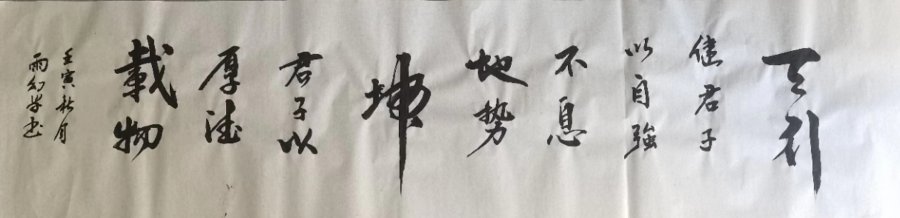 天行
健君子
以自強
不息
地势
坤
君子以
厚德
載物
壬寅秋月
雨幻学书